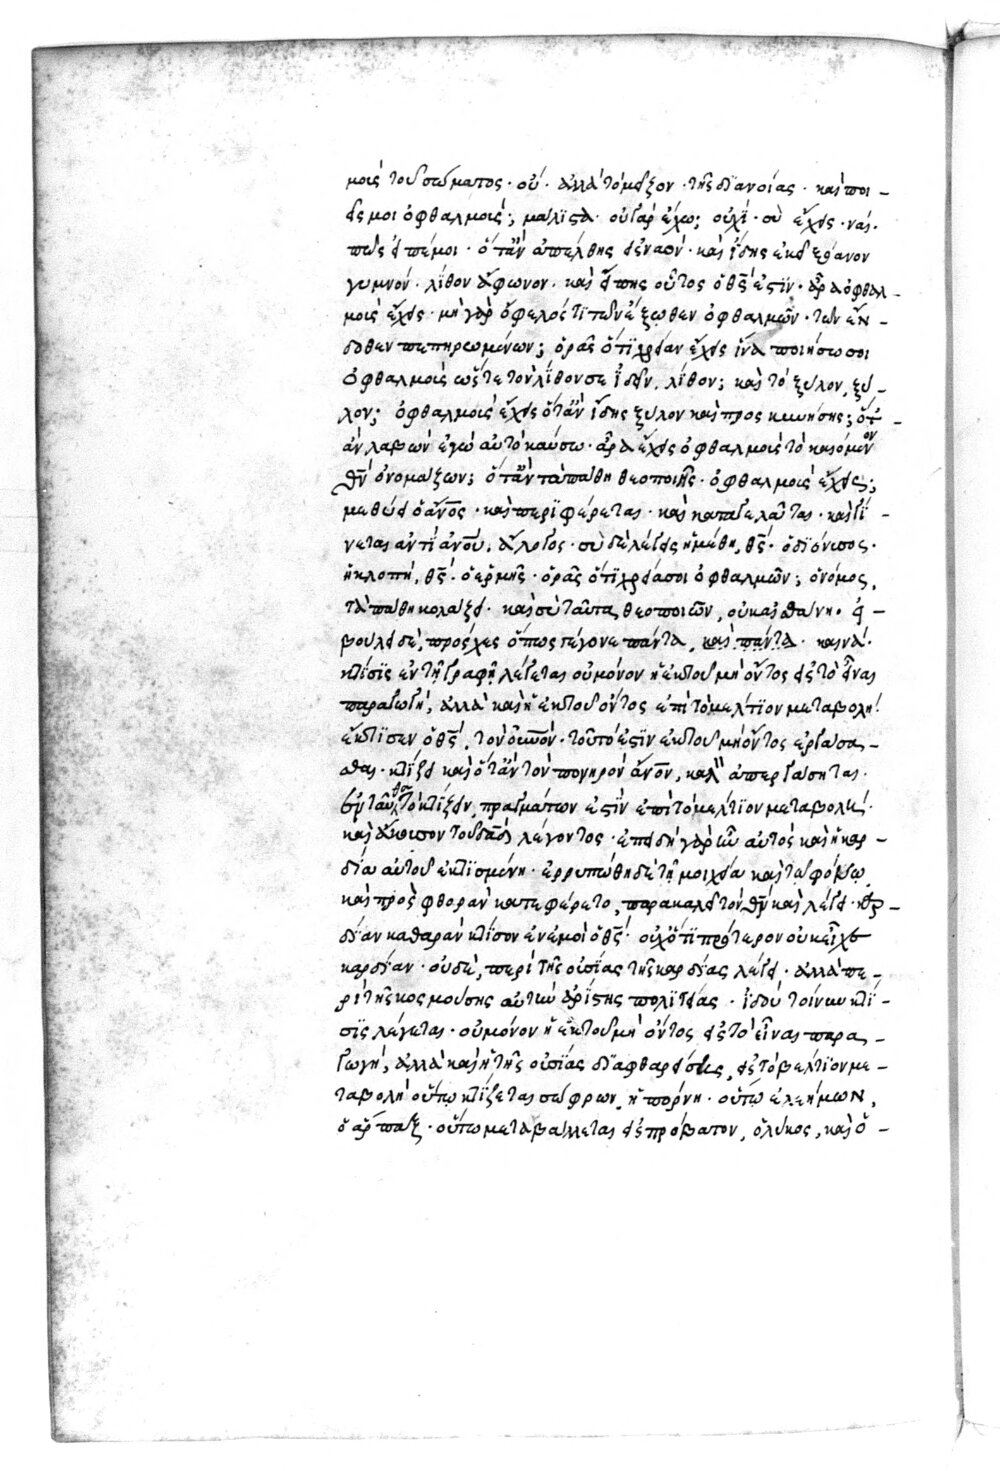 μοὺς τοῦ σώματος· οὔ· ἀλλὰ τὸ μεῖζον· τῆς διανοίας· καὶ ποί-
εις μοι ὀφθαλμούς; μάλιστα· οὐ γὰρ ἔχω; οὐχί· οὐ ἔχεις· ναί.
πῶς εἰπέ μοι· ὅταν ἀπέλθης εἰς ναόν· καὶ ἴδης ἐκεῖ ξόανον
γυμνόν· λίθον ἄφωνον· καὶ εἴπης οὗτος ὁ θς ἐστίν· ἆρα ὀφθαλ-
μοὺς ἔχεις· μὴ γὰρ ὄφελός τι τῶν ἔξωθεν ὀφθαλμῶν· τῶν ἔν-
δοθεν πεπηρωμένων; ὁρᾶς ὅτι χρείαν ἔχεις ἵνα ποιήσωσοι
ὀφθαλμοὺς ὥστε τὸν λίθον σε ἰδεῖν, λίθον; καὶ τὸ ξύλον, ξύ-
λον; ὀφθαλμοὺς ἔχεις ὅταν ἴδης ξύλον καὶ προσκυνήσης;
ἂν λαβὼν ἐγὼ αὐτὸ καύσω· ἆρα ἔχεις ὀφθαλμοὺς τὸ καιόμενον
θν ὀνομάζων; ὅταν τὰ πάθη θεοποιῆς· ὀφθαλμοὺς ἔχεις;
μεθύει ὁ ανος· καὶ περιφέρεται· καὶ καταγελᾶται· καὶ γί-
νεται ἀντὶ ανου, ἄλογος· σὺ δὲ λέγεις ἡ μέθη, θς· ὁ διόνυσος·
ἡ κλοπή, θς· ὁ ἑρμῆς· ὁρᾶς ὅτι χρεία σοι ὀφθαλμῶν; ὁ νόμος,
τὰ πάθη κολάζει· καὶ σὺ ταῦτα θεοποιῶν, οὐκ αἰσθάνη· εἰ
βούλει δὲ, πρόσχες ὅπως γέγονε πάντα, καὶ πάντα· καινά·
κτίσις ἐν τῆ γραφῆ λέγεται οὐ μόνον ἡ ἐκ τοῦ μὴ ὄντος εἰς τὸ εἶναι
παραγωγή, ἀλλὰ καὶ ἡ ἐκ τοῦ ὄντος ἐπὶ τὸ βέλτιον μεταβολή·
ἔκτισεν ὁ θς, τὸν οὐνον· τοῦτό ἐστιν ἐκ τοῦ μὴ ὄντος εἰργάσα-
το· κτίζει καὶ ὅταν τὸν πονηρὸν ανον, καλὸν ἀπεργάσηται·
ἐνταῦθα τὸ κτίζειν, πραγμάτων ἐστὶν ἐπὶ τὸ βέλτιον μεταβολή·
καὶ ἄκουσον τοῦ δαδ λέγοντος· ἐπειδὴ γὰρ ἦν αὐτὸς καὶ ἡ καρ-
δία αὐτοῦ ἐκτισμένη· ἐρρυπώθη δὲ τῆ μοιχεία καὶ τῶ φόνω
καὶ πρὸς φθορὰν κατεφέρετο, παρακαλεῖ τὸν θν καὶ λέγει· καρ-
δίαν καθαρὰν κτίσον ἐν ἐμοὶ ὁ θς· οὐχ ὅτι πρότερον οὐκ εἶχε
καρδίαν· οὐδὲ, περὶ τῆς οὐσίας τῆς καρδίας λέγει· ἀλλὰ πε-
ρὶ τῆς κοσμούσης αὐτὴν ἀρίστης πολιτείας· ἰδοὺ τοίνυν κτί-
σις λέγεται· οὐ μόνον ἡ ἐκ τοῦ μὴ ὄντος εἰς τὸ εἶναι παρα-
γωγή, ἀλλὰ καὶ ἡ τῆς οὐσίας διαφθαρείσης, εἰς τὸ βέλτιον με-
ταβολὴ οὕτω κτίζεται σώφρων, ἡ πόρνη· οὕτω ἐλεήμων,
ὁ ἅρπαξ· οὕτω μεταβάλλεται εἰς πρόβατον, ὁ λύκος, καὶ ὁ-